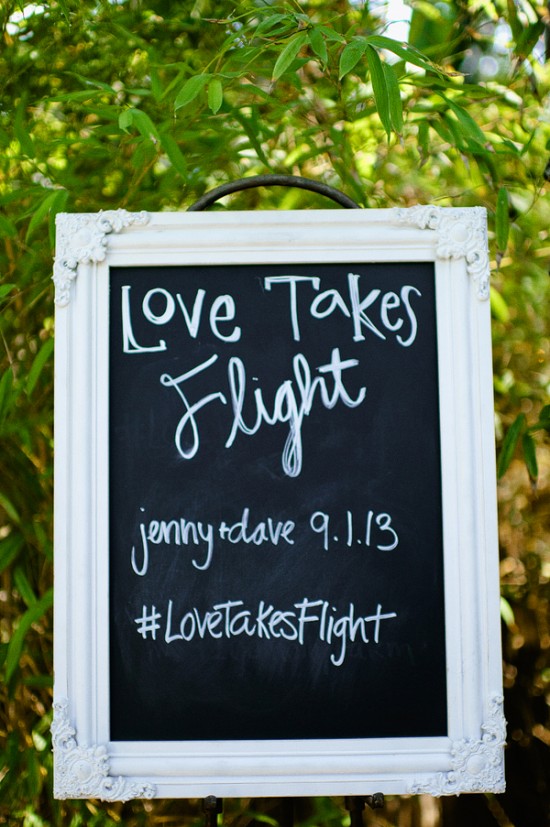 Love Takes
Flight
jenny+dave 9.1.13
#LoveTakesFlight